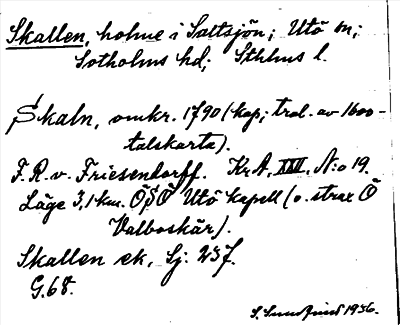 Skallen, holme i Saltsjön; Utö m;
Sotholms hd; Sthlms l.
Skaln, omkr. 1790 (kop; trol. av 1600-
talskarta).
F. R. v. Friesendorff. Kr A. XXI. N:o 19.
Läge 3,1 km. ÖSÖ Utö kapell (o. strax Ö
Valboskär).
Skallen ek, Sj: 237.
G. 68.
S. 1936.